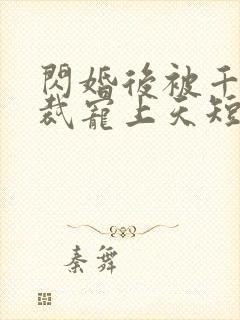 閃婚後被千
裁寵上天短
秦舞